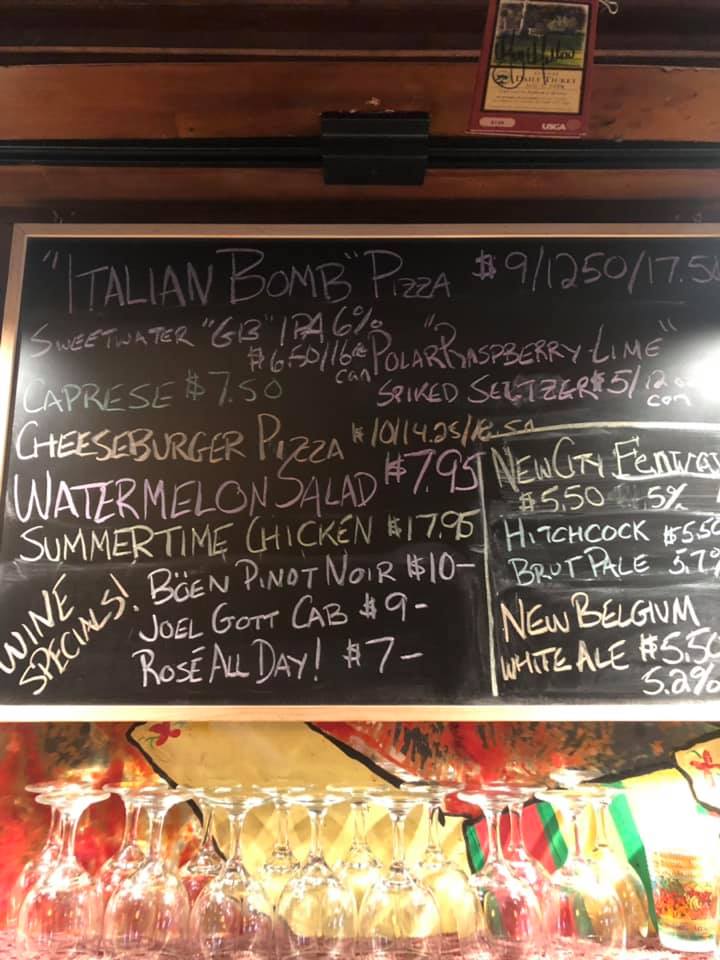 DAILY TICKET
USGA
"ITALIAN BOMB" PIZZA $9/1250/17.5
SWEETWATER "G13" IPA 6%
$6.50/16oz can
"POLAR RASPBERRY-LIME"
SPIKED SELTZER $5/12oz can
CAPRESE $7.50
CHEESEBURGER PIZZA $10/14.25/18.50
WATERMELON SALAD $7.95
SUMMERTIME CHICKEN $17.95
WINE SPECIALS!
BÖEN PINOT NOIR $10-
JOEL GOTT CAB $9-
ROSÉ ALL DAY! $7-
NEW CITY FENWAY
$5.50 5%
HITCHCOCK $5.50
BRUT PALE 5.7%
NEW BELGIUM
WHITE ALE $5.50
5.2%